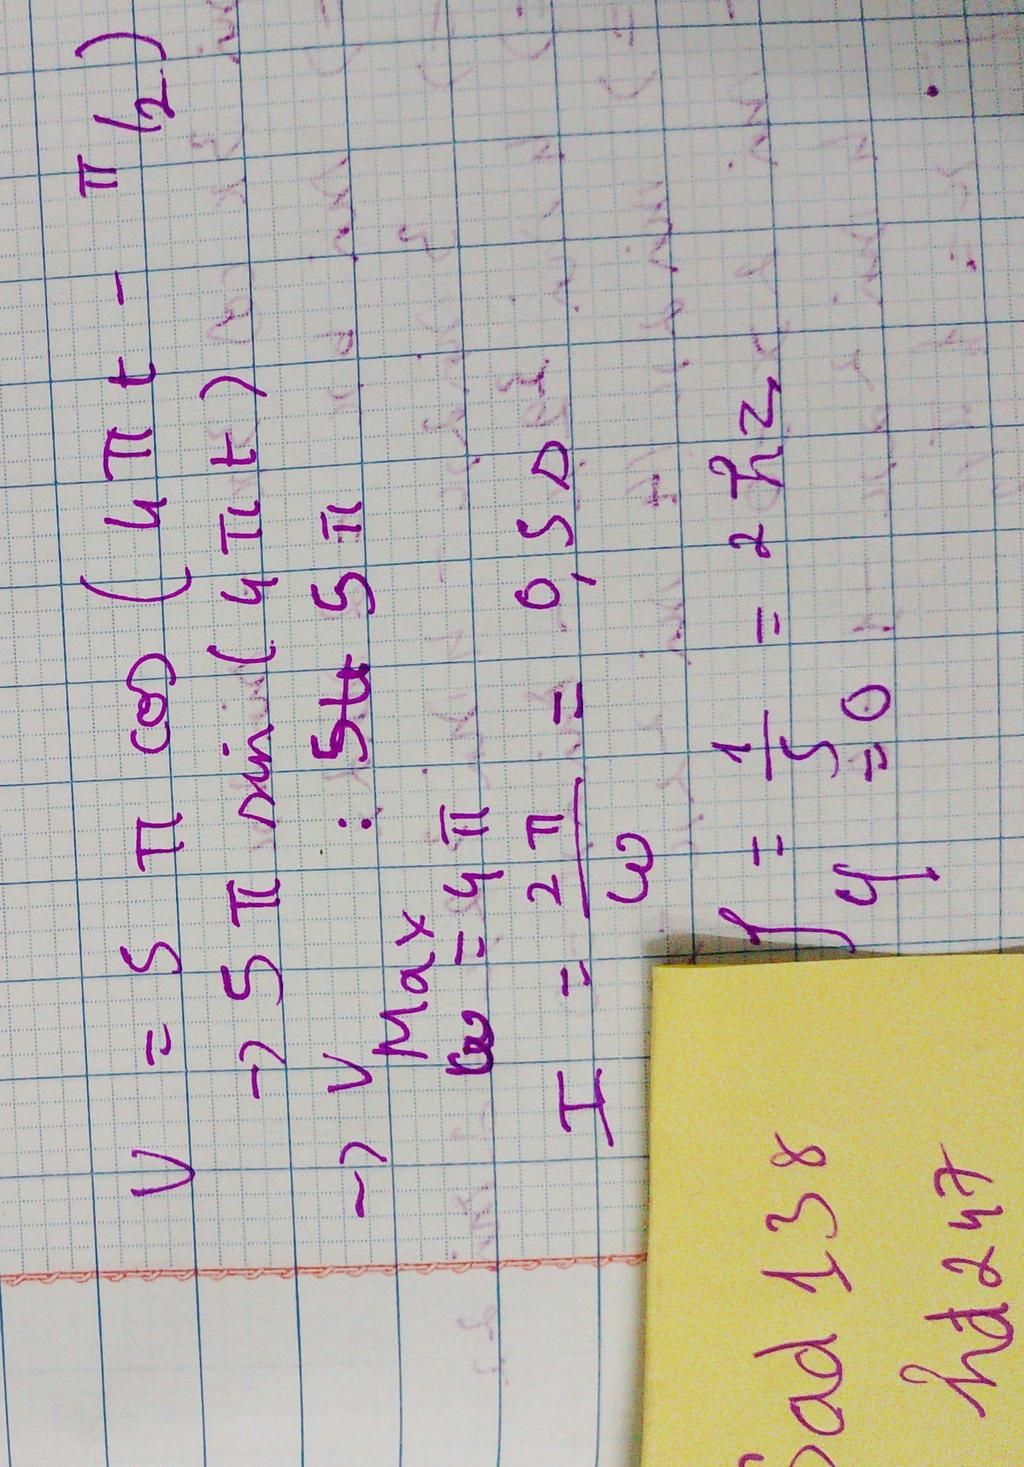 V = 5 π cos ( 4 π t - π/2 )
→ 5 π sin ( 4 π t )
→ V Max : 5 π
ω = 4 π
T = 2 π / ω = 0,5 s
f = 1 / 5 = 2 hz
φ = 0
138
hd247